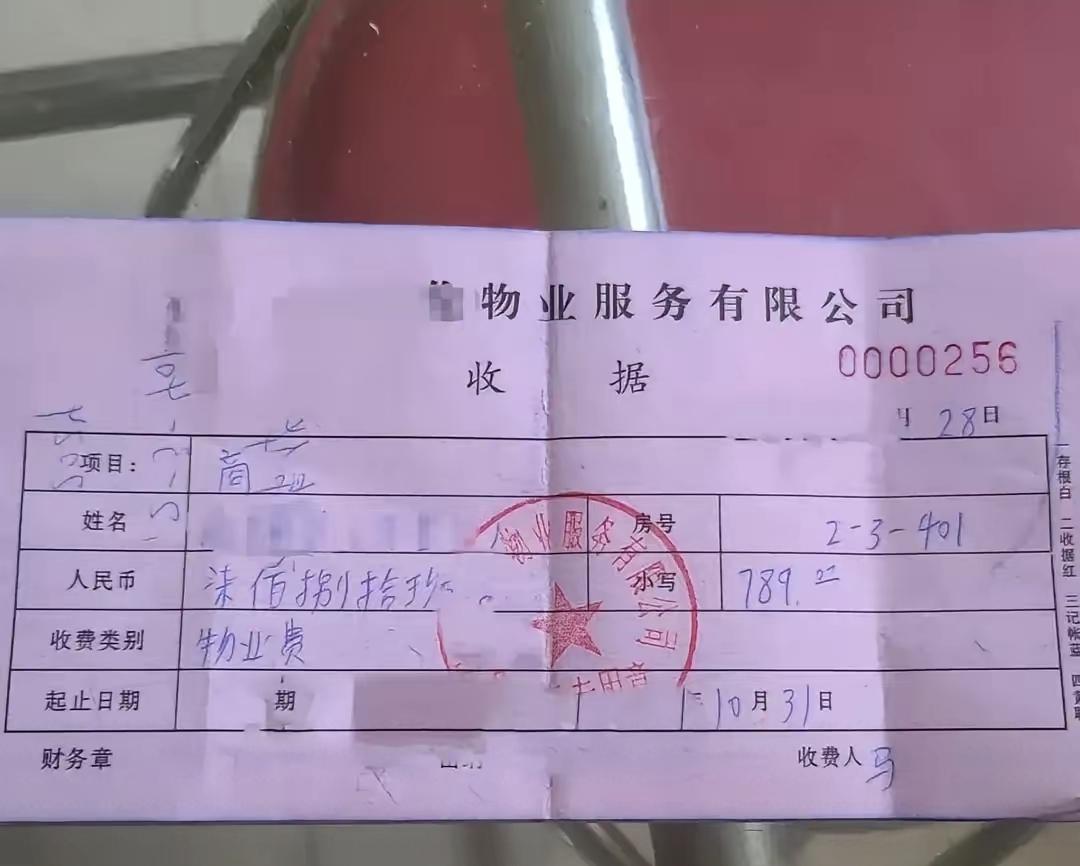 物业服务有限公司
收 据
0000256
月 28日
项目： 商业
姓名 房号 2-3-401
人民币 柒佰捌拾玖 小写 789.
收费类别 物业费
起止日期 期 10月31日
财务章 收费人 马
一存根白 二收据红 三记帐蓝 四黄联
物业服务有限公司